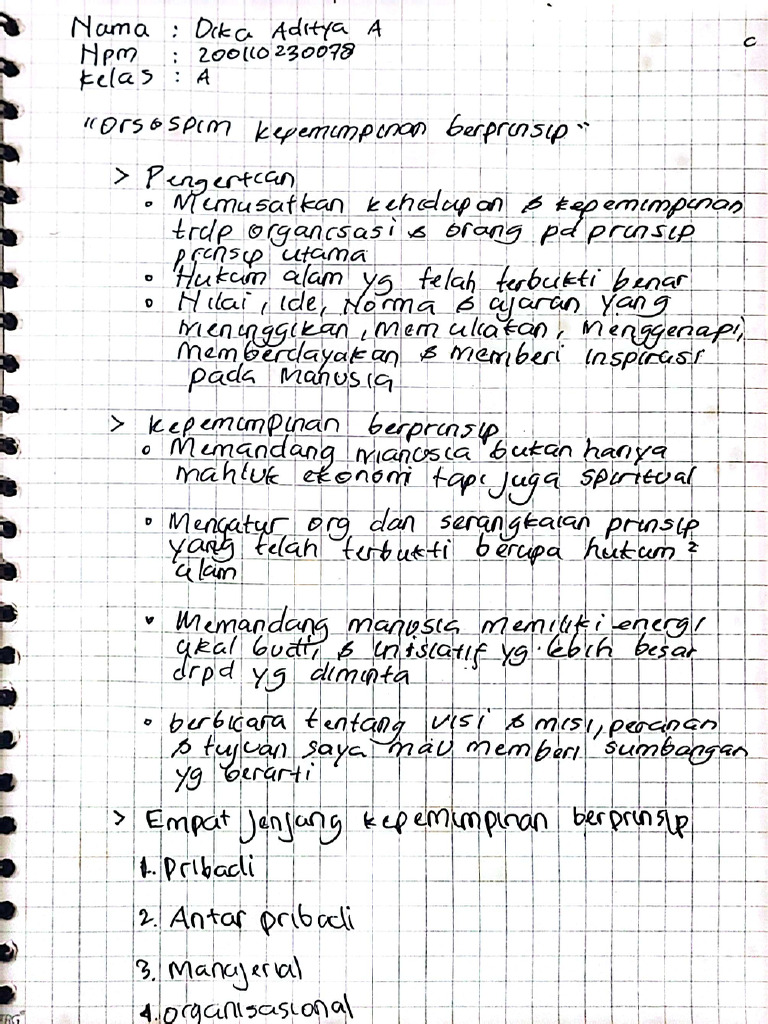 Nama : Dika Aditya A
Npm : 200110230078
Kelas : A
C
"Orsospim kepemimpinan berprinsip"
> Pengertian
• Memusatkan kehidupan & kepemimpinan
trdp organisasi & orang pd prinsip
prinsip utama
• Hukum alam yg telah terbukti benar
• Nilai, Ide, Norma & ajaran yang
meninggikan, memuliakan, menggenapi,
memberdayakan & memberi inspirasi
pada manusia
> kepemimpinan berprinsip
• Memandang manusia bukan hanya
mahluk ekonomi tapi juga spiritual
• Mengatur org dan serangkaian prinsip
yang telah terbukti berupa hukum²
alam
• Memandang manusia memiliki energi
akal budi, & inisiatif yg lebih besar
drpd yg diminta
• berbicara tentang visi & misi, peranan
& tujuan saya mau memberi sumbangan
yg berarti
> Empat jenjang kepemimpinan berprinsip
1. Pribadi
2. Antar pribadi
3. Manajerial
4. organisasional